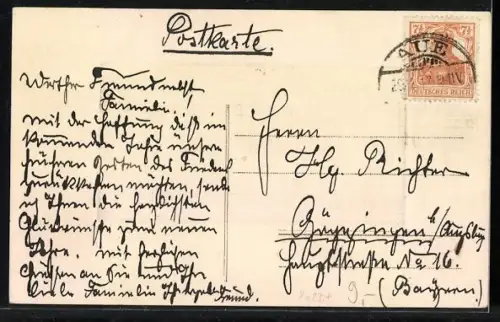 Postkarte.
7½ 7½
DEUTSCHES REICH
AUE
Werther Freund nebst
Familie,
mit der Hoffnung daß im
kommenden Jahre unsere
früheren Zeiten des Friedens
zurückkehren möchten, sende
ich Ihnen die herzlichsten
Glückwünsche zum neuen
Jahre. Mit herzlichen
Grüssen an Sie und Ihre
liebe Familie Ihr
Freund.
Herrn
Hg. Richter
Göggingen b/Augsburg
Hauptstrasse No 16.
(Bayern)
9,-